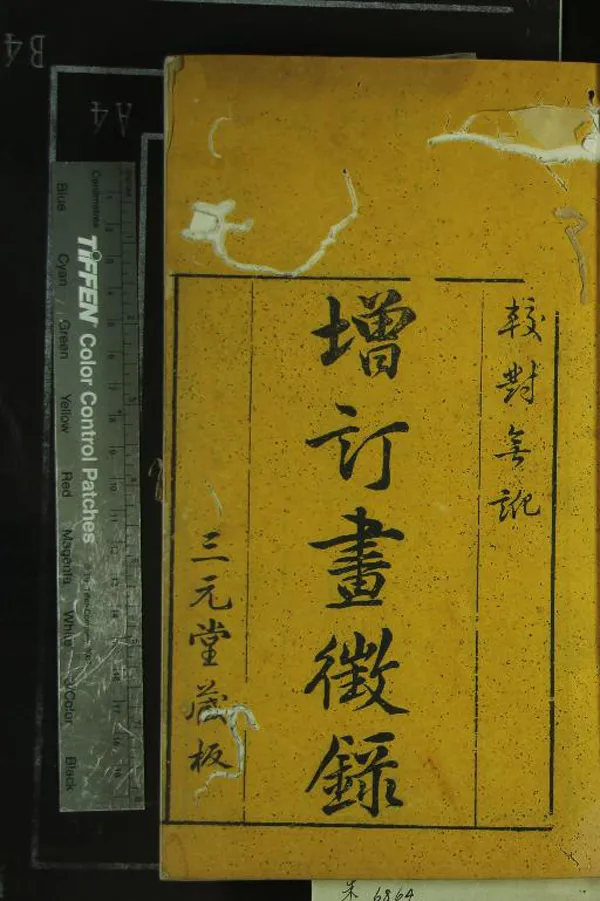 較對無訛
增訂畫徵錄
三元堂藏板
B4
A4
Centimetres
TIFFEN Color Control Patches
Blue
Cyan
Green
Yellow
Red
Magenta
White
3/Color
Black
朱 6864